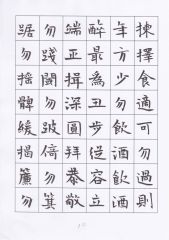 揀擇食適可勿過則
年方少勿飲酒飲酒
醉最為丑步從容立
端正揖深圓拜恭敬
勿踐閾勿跛倚勿箕
踞勿搖髀緩揭簾勿